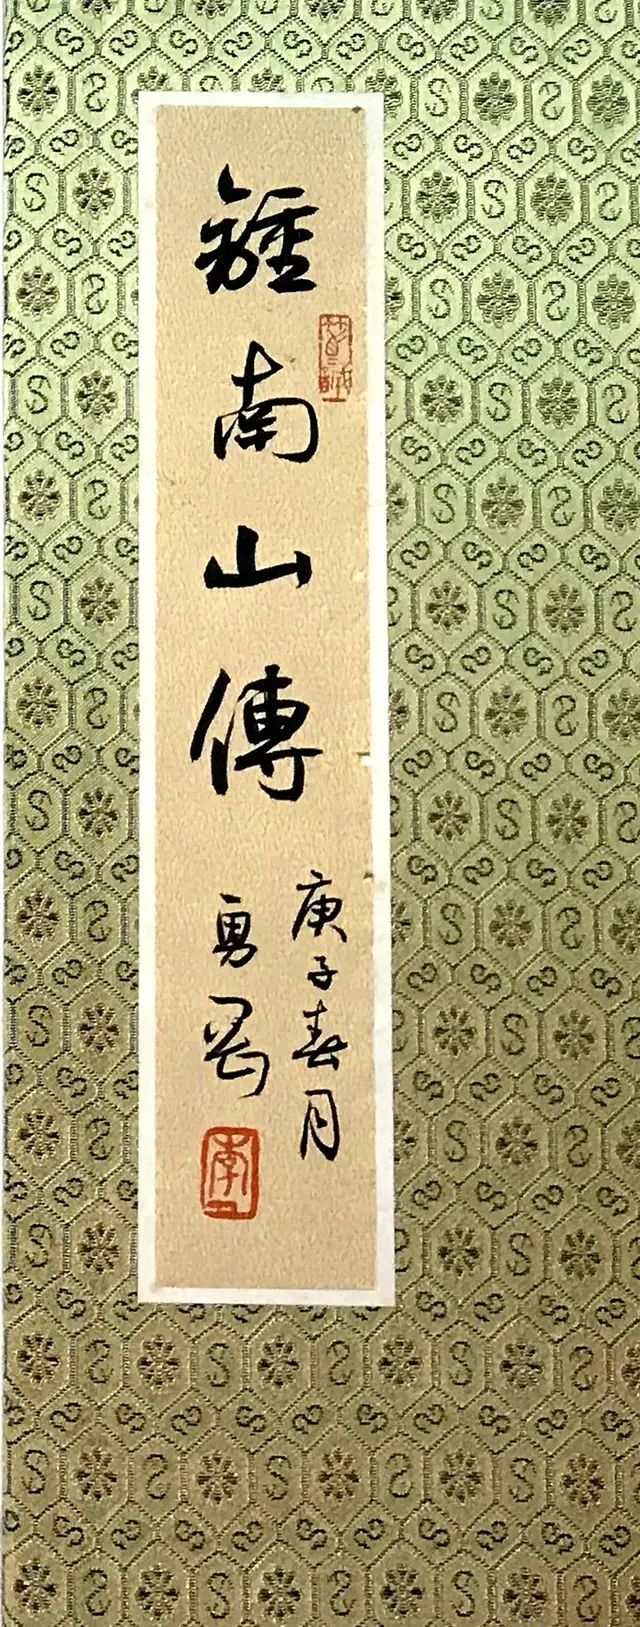 鍾南山傳
庚子春月
勇